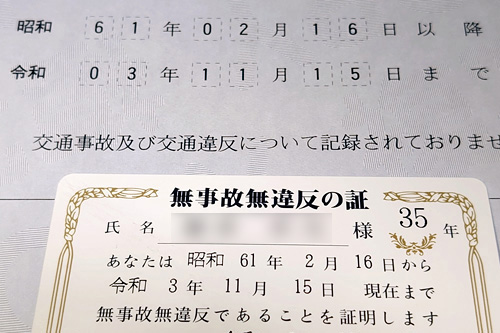 昭和 61年02月16日以降
令和 03年11月15日まで
交通事故及び交通違反について記録されておりませ
無事故無違反の証
氏名 様 35年
あなたは 昭和 61年 2月 16日から
令和 3年 11月 15日 現在まで
無事故無違反であることを証明します